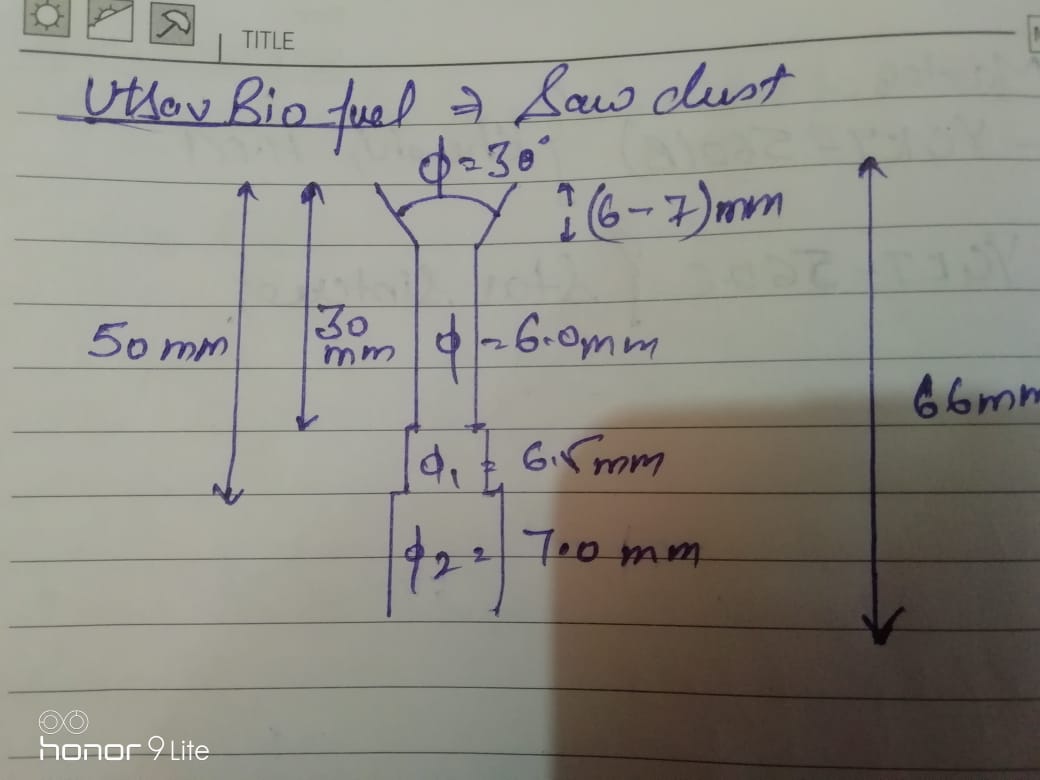 TITLE
Utsav Bio fuel ⇒ Saw dust
ϕ = 30°
(6-7)mm
50 mm
30 mm
ϕ = 6.0mm
66mm
ϕ₁ = 6.5mm
ϕ₂ = 7.0 mm
honor 9 Lite